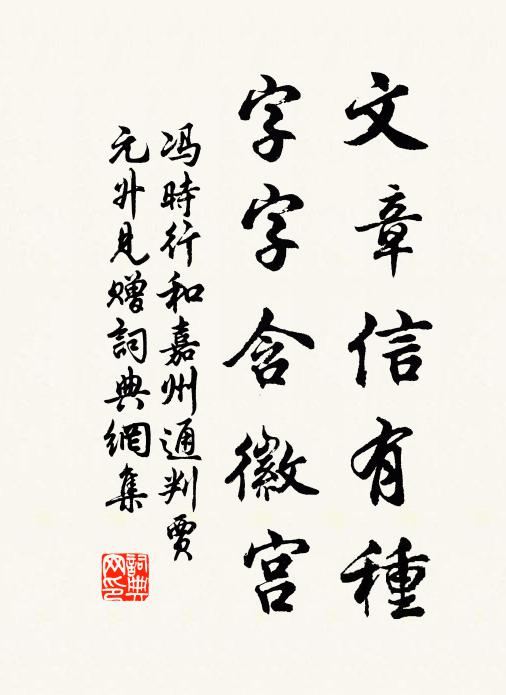 文章信有種
字字含徽宫
冯時行和嘉州通判贾
元升見贈詞典網集
詞典网印